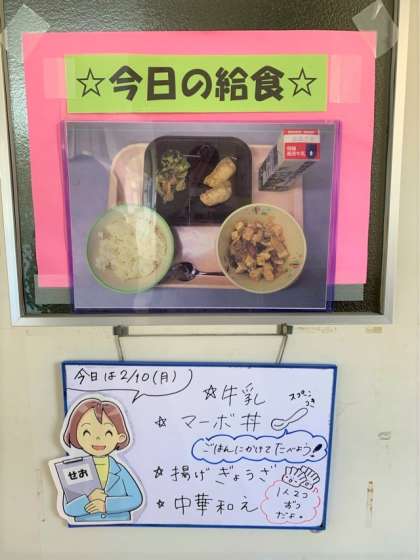 ☆今日の給食☆
今日は2/10(月)
☆牛乳
☆マーボ丼
スプーン
つき
ごはんにかけてたべよう!
☆揚げぎょうざ
☆中華和え
1人2コ
ずつ
だよ。
せお